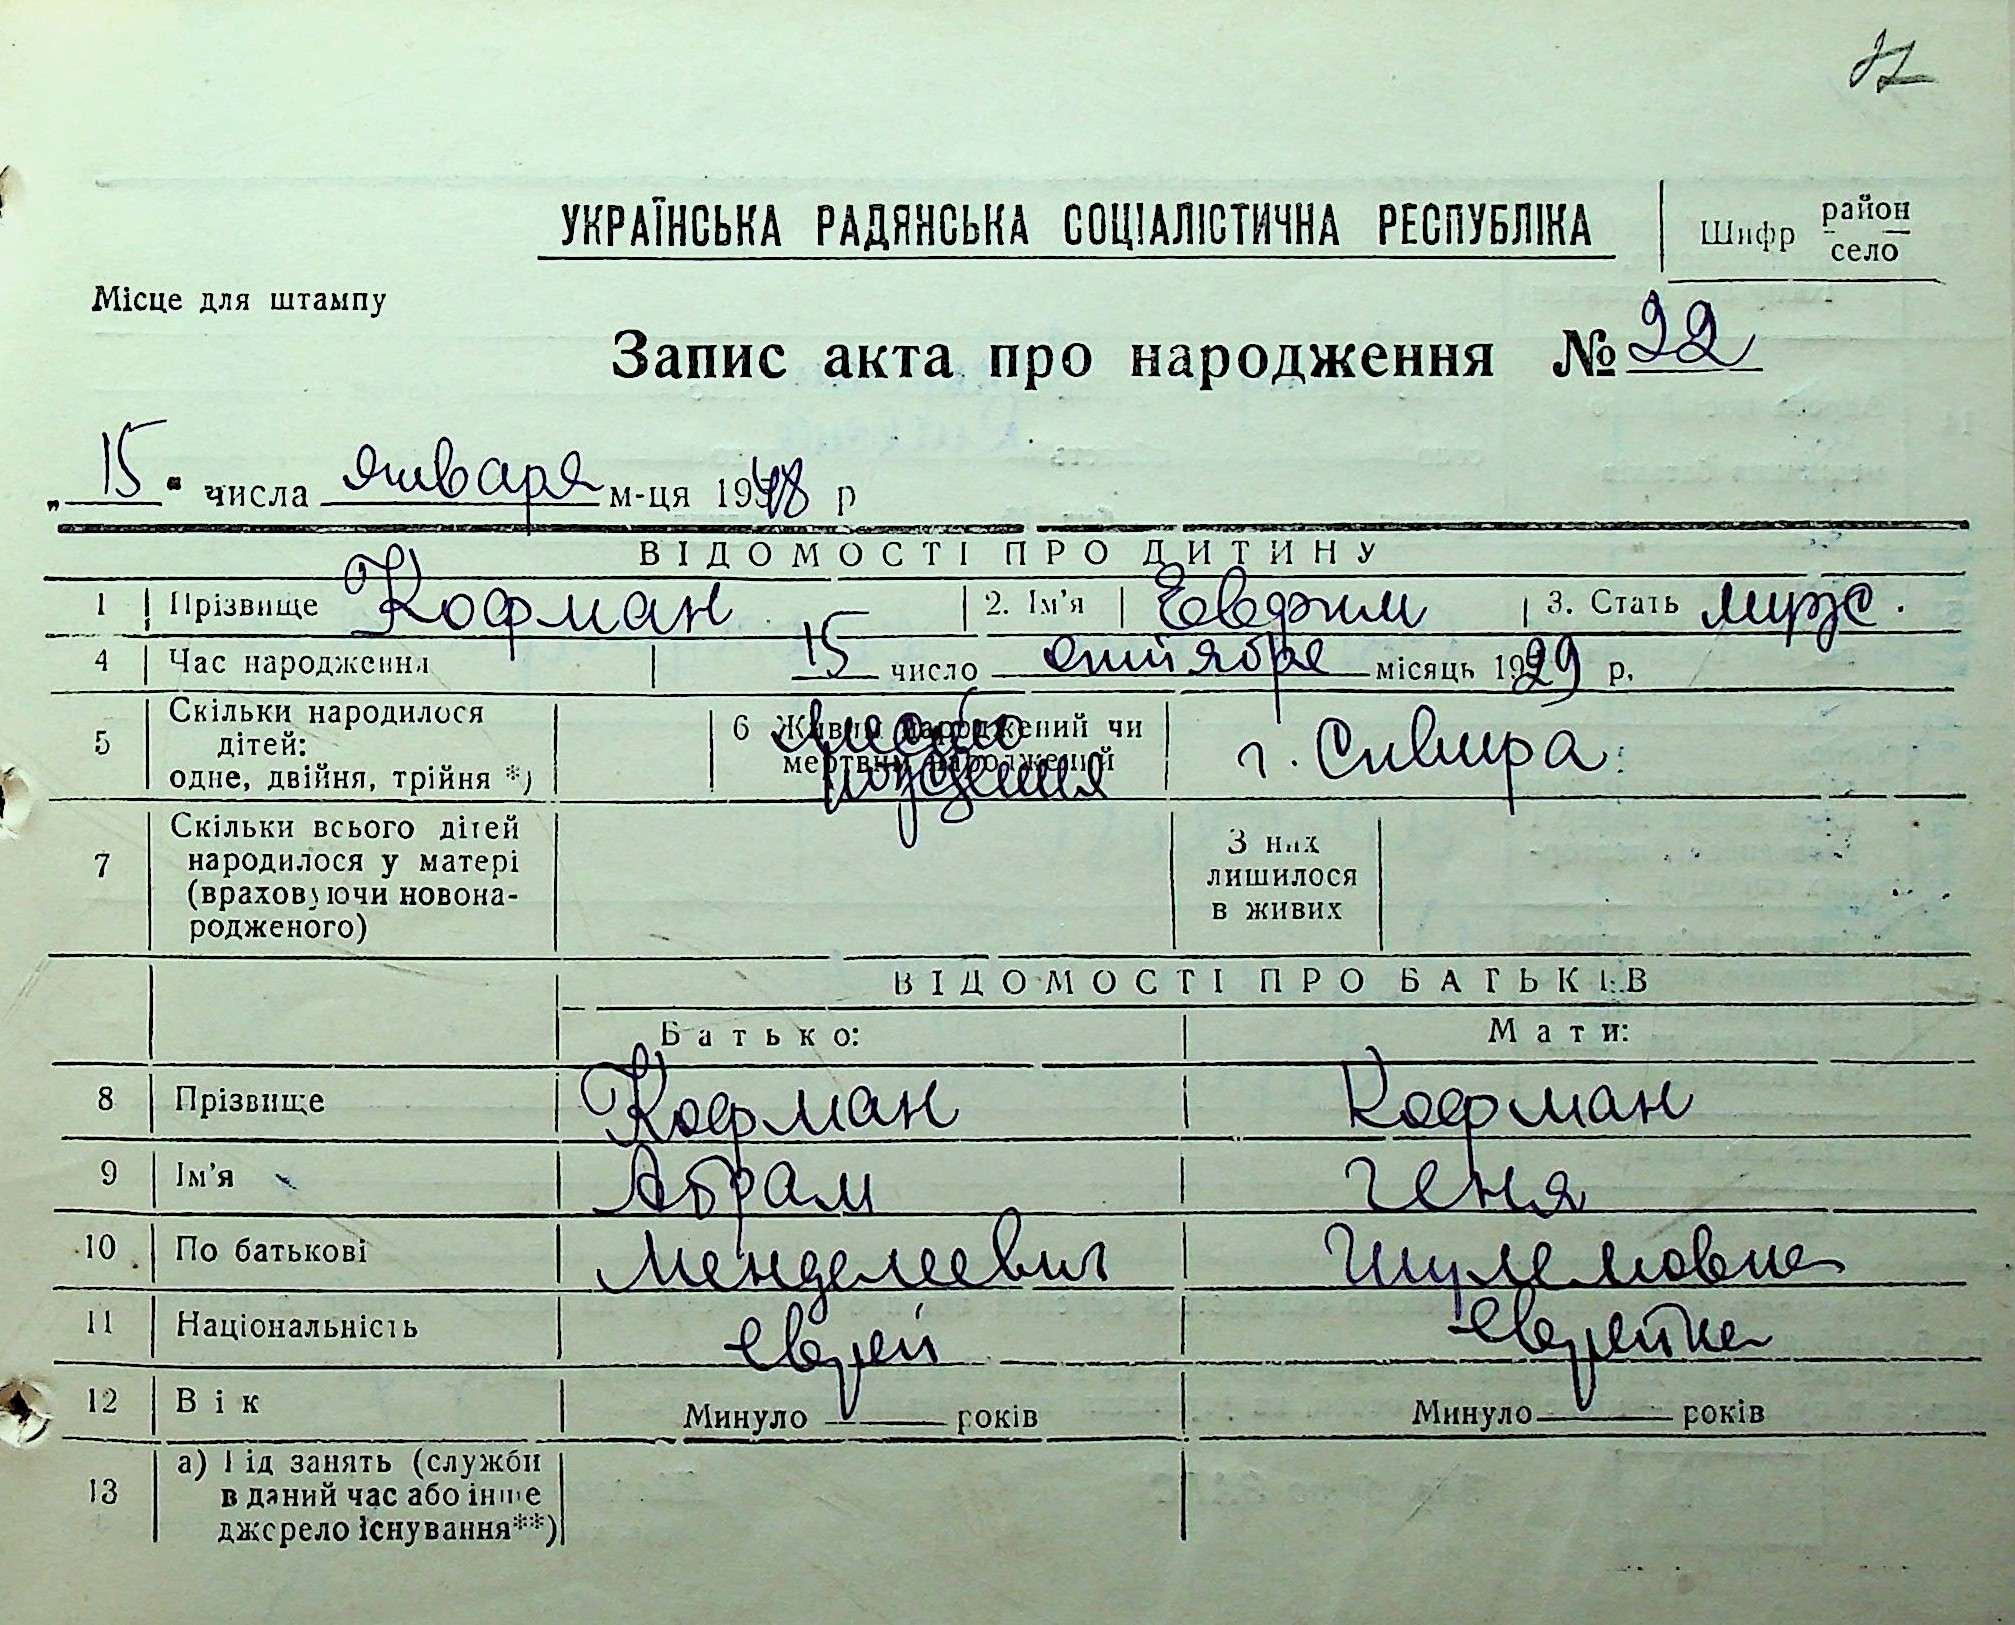 УКРАЇНСЬКА РАДЯНСЬКА СОЦІАЛІСТИЧНА РЕСПУБЛІКА
Шифр район село
Місце для штампу
Запис акта про народження № 22
„15" числа января м-ця 1948 р
ВІДОМОСТІ ПРО ДИТИНУ
1 Прізвище Кофман 2. Ім'я 3. Стать муж.
4 Час народження 15 число октября місяць 1929 р.
5 Скільки народилося дітей: одне, двійня, трійня *)
6 Живим народжений чи мертвим народжений
место рождения
г. Сквира
7 Скільки всього дітей народилося у матері (враховуючи новонародженого)
З них лишилося в живих
ВІДОМОСТІ ПРО БАТЬКІВ
Батько: Мати:
8 Прізвище Кофман Кофман
9 Ім'я Абрам Геня
10 По батькові Менделеевич Шулемовна
11 Національність еврей еврейка
12 Вік Минуло років Минуло років
13 а) Рід занять (служби
в даний час або інше
джерело існування**)